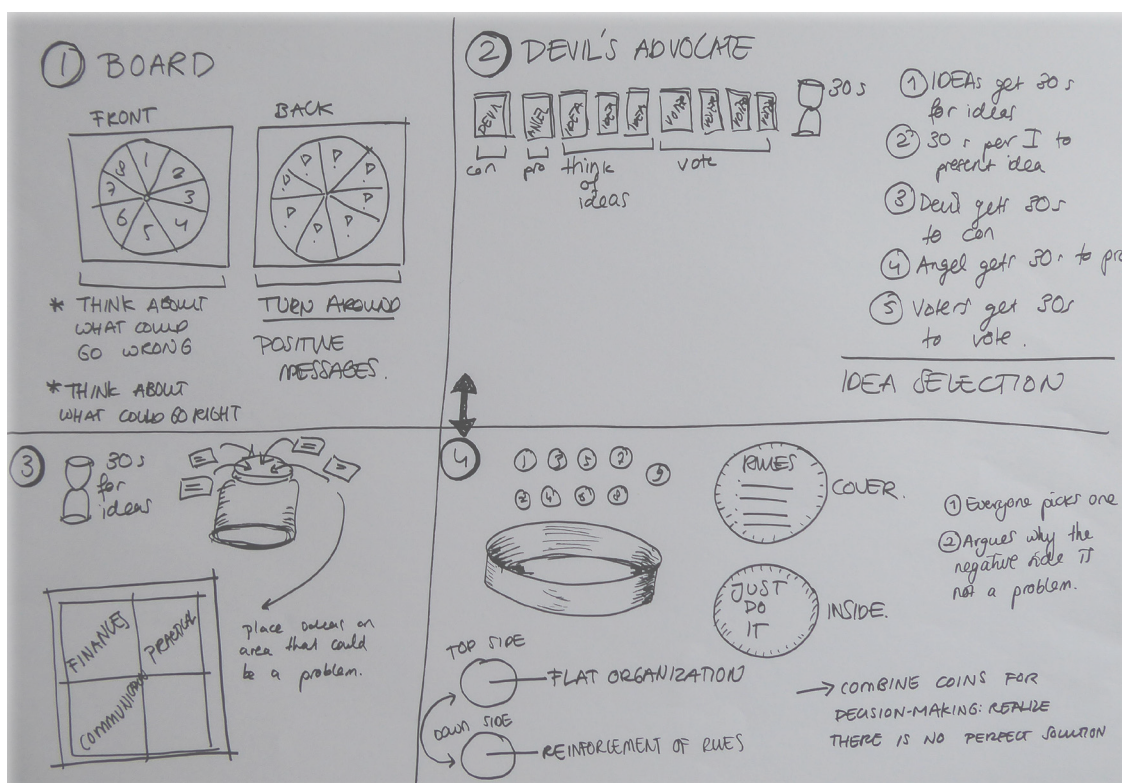 ① BOARD
FRONT
BACK
1
2
3
4
5
6
7
8
* THINK ABOUT
WHAT COULD
GO WRONG
* THINK ABOUT
WHAT COULD GO RIGHT
TURN AROUND
POSITIVE
MESSAGES.
② DEVIL'S ADVOCATE
DEVIL
con
pro
think
of
ideas
vote
30s
① IDEAs get 30s
for ideas
② 30 s per I to
present idea
③ Devil gets 30s
to con
④ Angel gets 30s to pro
⑤ Voters get 30s
to vote.
IDEA SELECTION
③
30s
for
ideas
FINANCES
PRACTICAL
COMMUNICATION
place on
area that could
be a problem.
④
① ③ ⑤ ⑦ 9
② ④ ⑥ ⑧
RULES
COVER.
JUST
DO
IT
INSIDE.
① Everyone picks one
② Argues why the
negative side is
not a problem.
TOP SIDE
FLAT ORGANIZATION
DOWN SIDE
REINFORCEMENT OF RULES
→ COMBINE COINS FOR
DECISION-MAKING: REALIZE
THERE IS NO PERFECT SOLUTION